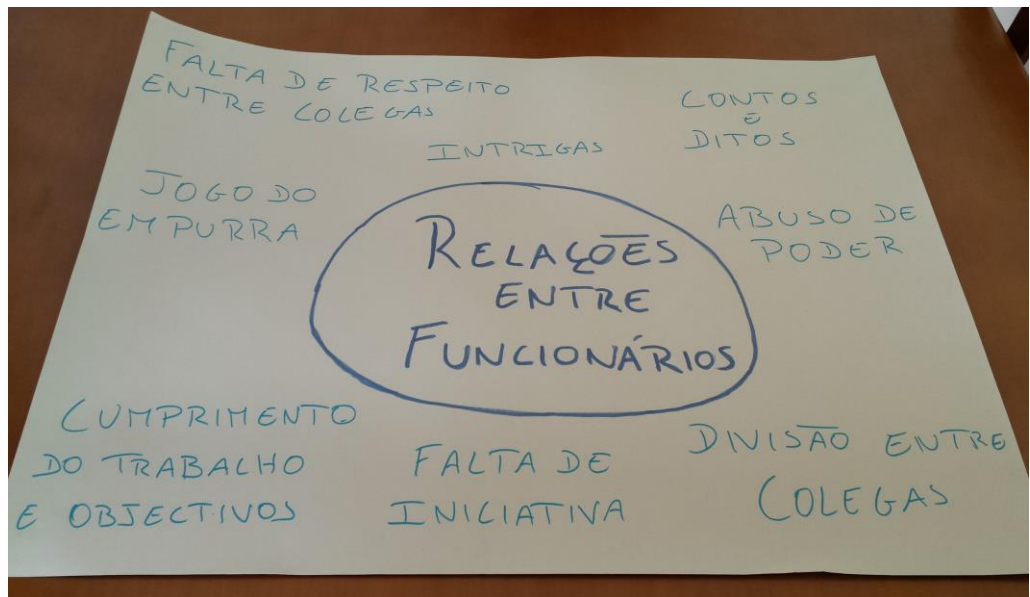 FALTA DE RESPEITO
ENTRE COLEGAS
INTRIGAS
CONTOS
E
DITOS
JOGO DO
EMPURRA
ABUSO DE
PODER
RELAÇÕES
ENTRE
FUNCIONÁRIOS
CUMPRIMENTO
DO TRABALHO
E OBJECTIVOS
FALTA DE
INICIATIVA
DIVISÃO ENTRE
COLEGAS